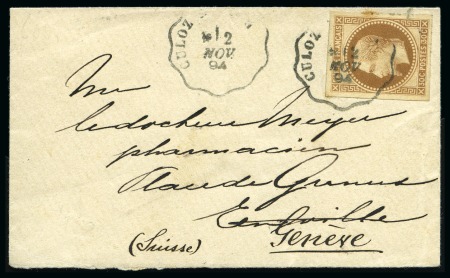 CULOZ
12
NOV
94
CULOZ
12
NOV
94
POSTES
Mr
le docteur Meyer
pharmacien
Place de Grenus
(Suisse)
Genève